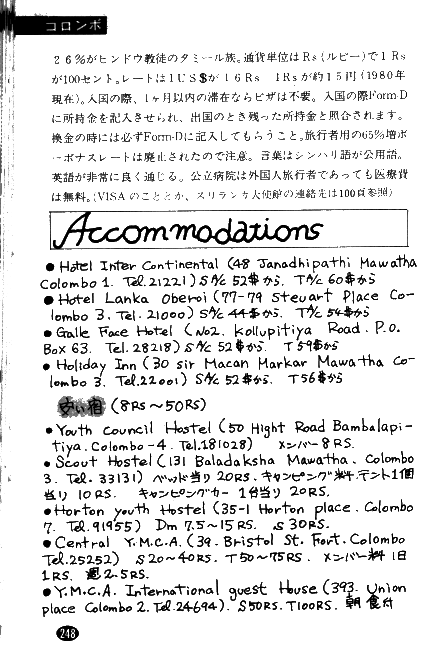 コロンボ
26%がヒンドウ教徒のタミール族。通貨単位はRs(ルピー)で1Rs
が100セント。レートは1US$が16Rs 1Rsが約15円(1980年
現在)。入国の際、1ヶ月以内の滞在ならビザは不要。入国の際Form-D
に所持金を記入させられ、出国のとき残った所持金と照合されます。
換金の時には必ずForm-Dに記入してもらうこと。旅行者用の65%増ボ
ーボナスレートは廃止されたので注意。言葉はシンハリ語が公用語。
英語が非常に良く通じる。公立病院は外国人旅行者であっても医療費
は無料。(VISAのこととか、スリランカ大使館の連絡先は100頁参照)
Accommodations
● Hotel Inter Continental (48 Janadhipathi Mawatha
Colombo 1. Tel.21221) S A/c 52$から. T A/c 60$から
● Hotel Lanka Oberoi (77-79 Steuart Place Co-
lombo 3. Tel. 21000) S A/c 44$から. T A/c 54$から
● Galle Face Hotel (No2. Kollupitiya Road. P.O.
Box 63. Tel. 28218) S A/c 52$から. T 59$から
● Holiday Inn (30 sir Macan Markar Mawatha Co-
lombo 3. Tel.22001) S A/c 52$から T56$から
安い宿 (8RS~50RS)
● Youth Council Hostel (50 Hight Road Bambalapi-
tiya. Colombo-4. Tel.181028) メンバー 8RS.
● Scout Hostel (131 Baladaksha Mawatha. Colombo
3. Tel. 33131) ベッド当り 20RS. キャンピング料テント1個
当り 10RS. キャンピングカー 1台当り 20RS.
● Horton youth Hostel (35-1 Horton place. Colombo
7. Tel.91955) Dm 7.5~15RS. S 30RS.
● Central Y.M.C.A. (39. Bristol St. Fort. Colombo
Tel.25252) S 20~40RS. T50~75RS. メンバー料 1日
1RS. 週2.5RS.
● Y.M.C.A. International guest House (393. Union
place Colombo 2. Tel.24694). S50RS. T100RS. 朝食付
248